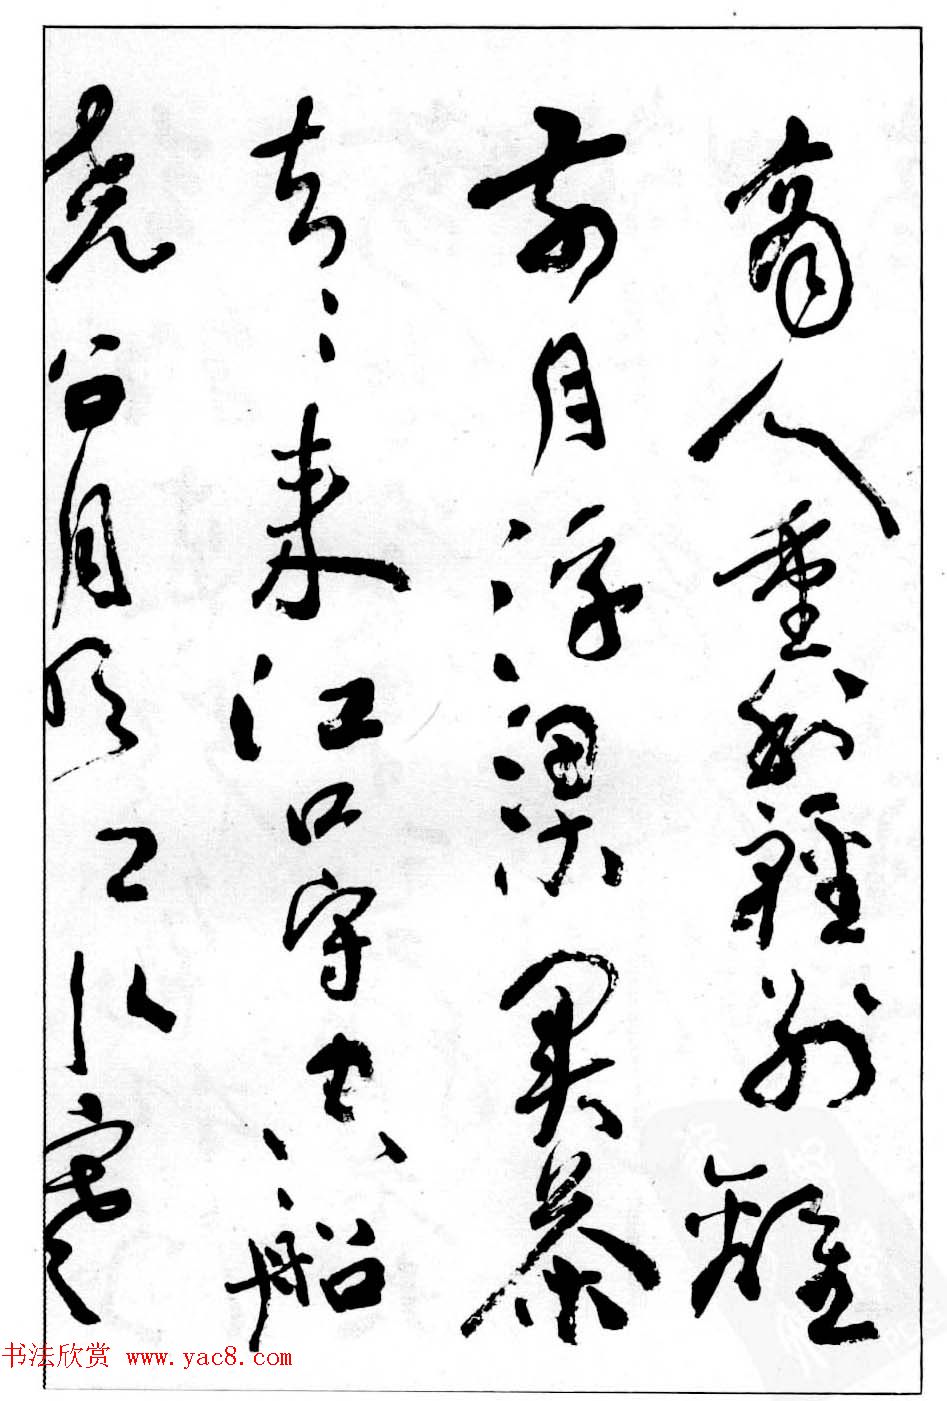 商人重利輕別離
前月浮梁買茶
去〻来江口守空船
繞船月明江水寒
书法欣赏 www.yac8.com